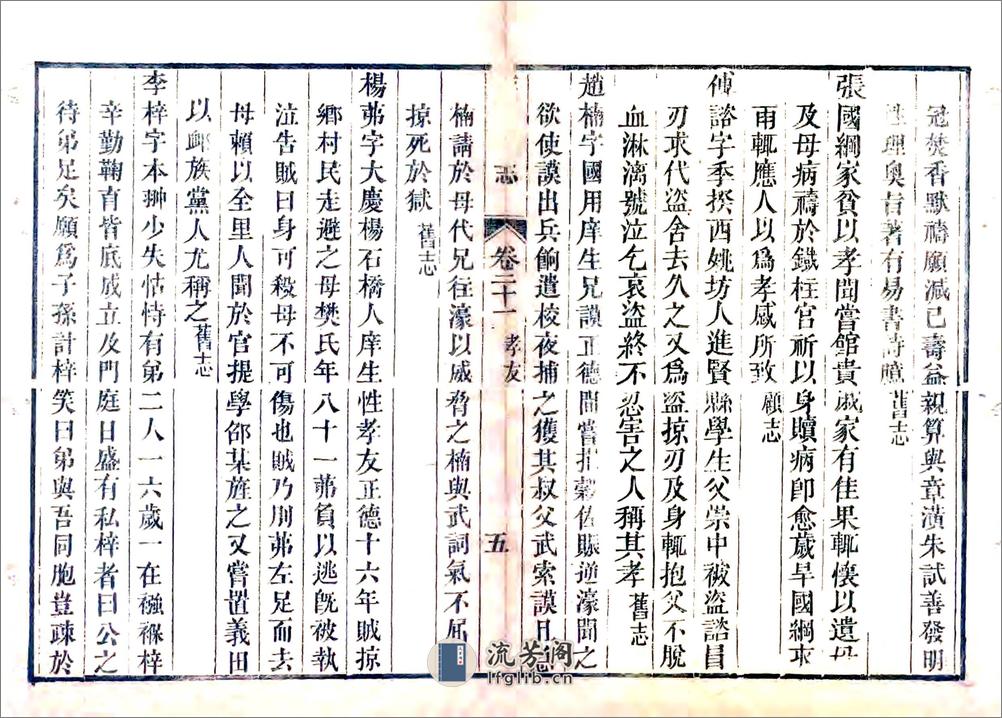 冠焚香默禱願減己壽益親算與章潢朱試善發明
性理奧旨著有易書詩臆舊志
張國綱家貧以孝聞嘗館貴戚家有佳果輒懷以遺母
及母病禱於鐵柱宫祈以身贖病卽愈歲旱國綱求
雨輒應人以爲孝感所致顧志
傅諮字季揆西姚坊人進賢縣學生父崇中被盜諮冒
刃求代盜舍去久之又爲盜掠刃及身輒抱父不脫
血淋漓號泣乞哀盜終不忍害之人稱其孝舊志
趙楠字國用庠生兄謨正德間嘗捐穀佐賑逆濠聞之
欲使謨出兵餉遣校夜捕之獲其叔父武索謨
志 卷二十一 孝友 五
楠請於母代兄往濠以威脅之楠與武詞氣不屈
掠死於獄舊志
楊茆字大慶楊石橋人庠生性孝友正德十六年賊掠
鄉村民走避之母樊氏年八十一茆負以逃旣被執
泣告賊曰身可殺母不可傷也賊乃刖茆左足而去
母賴以全里人聞於官提學邵某旌之又嘗置義田
以卹族黨人尤稱之舊志
李梓字本翀少失怙恃有弟二人一六歲一在襁褓梓
辛勤鞠育皆底成立及門庭日盛有私梓者曰公之
待弟足矣願爲子孫計梓笑曰弟與吾同胞豈疎於
流芳阁
lfglib.cn